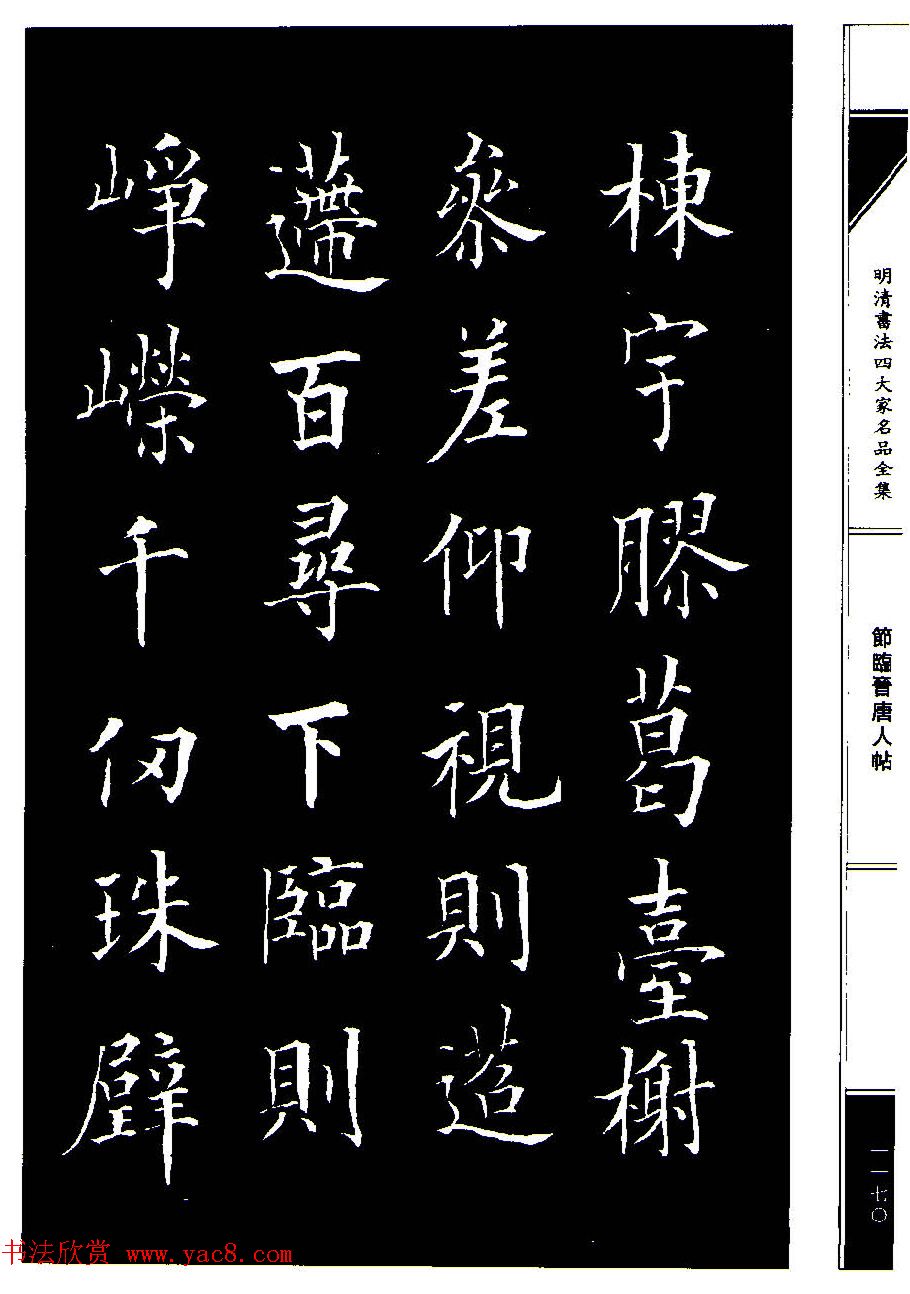 棟宇膠葛臺榭
參差仰視則迢
遰百尋下臨則
崢嶸千仞珠璧
明清書法四大家名品全集
節臨晉唐人帖
一一七〇
书法欣赏 www.yac8.com